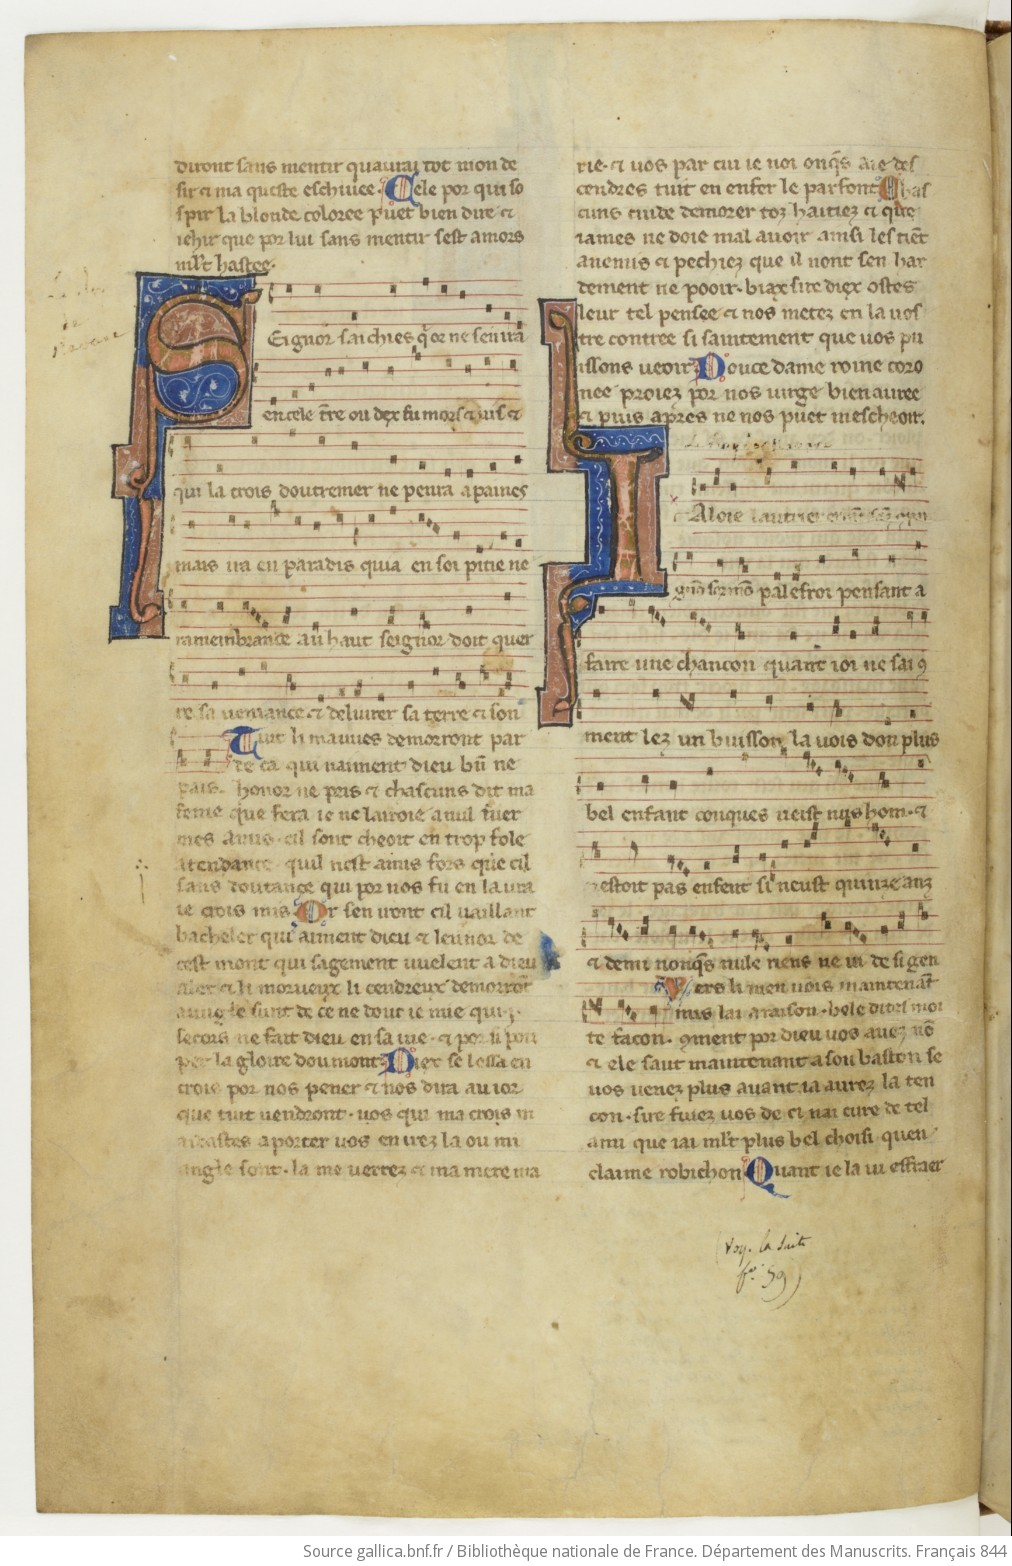 diront sans mentir quaurai tot mon de
sir et ma queste eschiuee. Cele por qui so
spir la blonde coloree puet bien dire et
iehir que por lui sans mentir sest amors
mlt hastee.
Seignor saichies qor ne sen ira
en cele tre ou dex fu mors et uis et
qui la crois doutremer ne penra a paines
mais ira en paradis qui a en soi pitie ne
ramembrance au haut seignor doit quer
re sa ueniance et deliurer sa terre et son
Tuit li mauues demorront par
de ca qui naiment dieu bn ne
pais. honor ne pris et chascuns dit ma
feme que fera ie ne lairoie a nul fuer
mes amis. cil sont cheoit en trop fole
atendance quil nest amis fors que cil
sans doutance qui por nos fu en la ura
ie crois mis Or sen uont cil uaillant
bacheler qui aiment dieu et leunor de
cest mont qui sagement uuelent a dieu
aler et li morueux li cendreux demorront
auugle sunt de ce ne dout ie mie qui .i.
secors ne fait dieu en sa uie. et por si pou
pert la gloire dou mont Diex se lessa en
crois por nos pener et nos dira au ior
que tuit uendront. uos qui ma crois m
aidastes a porter uos en irez la ou mi
angle sont. la me uerrez et ma mere ma
rie. et uos par cui ie noi onqs aie des
cendres tuit en enfer le parfont Chas
cuns cuide demorer toz haitiez et que
iames ne doie mal auoir ainsi les tiet
anemis et pechiez que il nont sen har
dement ne pooir. biax sire diex ostes
leur tel pensee et nos metez en la uos
tre contree si saintement que uos pu
issons ueoir Douce dame roine coro
nee proiez por nos uirge bien auree
et puis apres ne nos puet mescheoir.
Ialoie lautrier
palefroi pensant a
faire une chancon quant ioi ne sai 9
ment lez un buisson la uois dou plus
bel enfant conques ueist nus hom. et
nestoit pas enfent si neust quinze anz
et demi nonqs nule riens ne ui de si gen
Uers li men uois maintenant
mis lai a raison. bele dites moi
te facon. 9ment por dieu uos auez no
et ele saut maintenant a son baston se
uos uenez plus auant ia aurez la ten
con. sire fuiez uos de ci nai cure de tel
ami que iai mlt plus bel choisi quen
claime robichon Quant ie la ui effraer
(voy. la suite
fo. 59)
Source gallica.bnf.fr / Bibliothèque nationale de France. Département des Manuscrits. Français 844